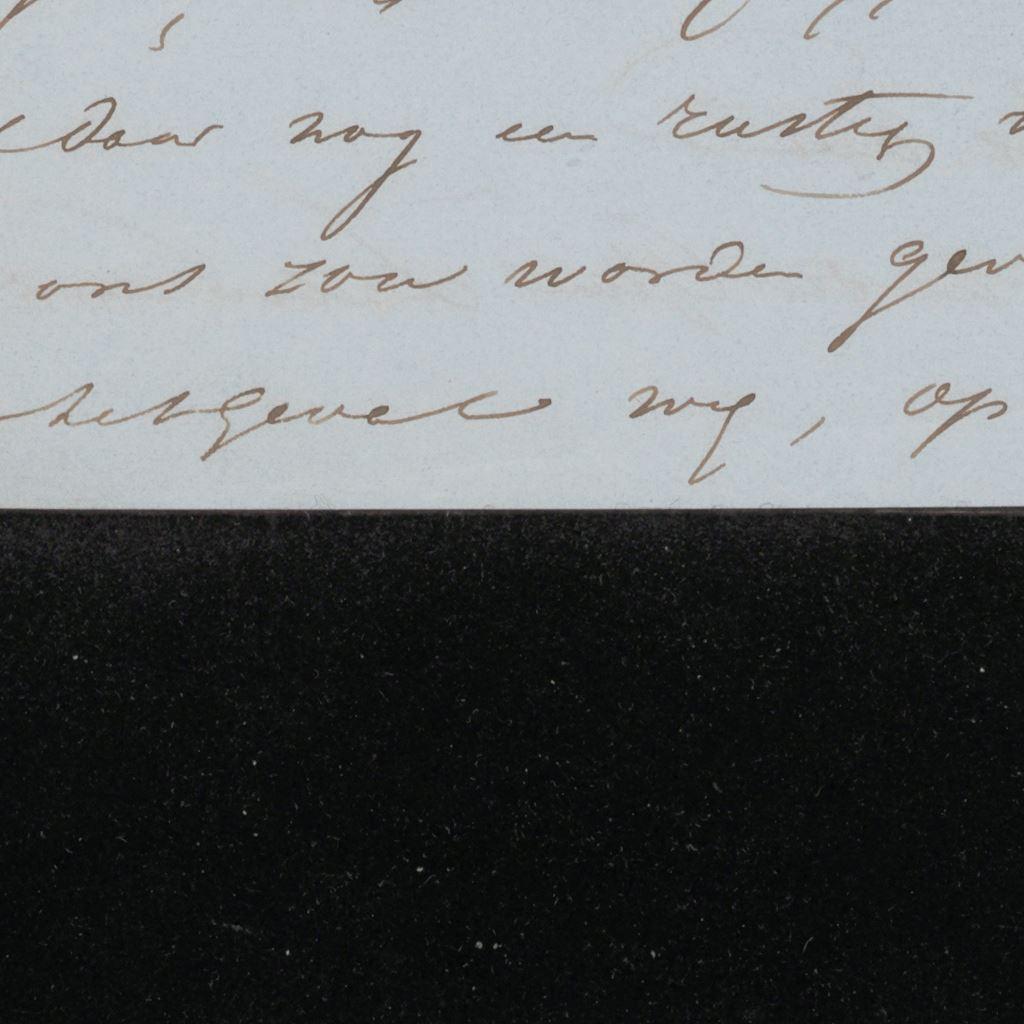 daar nog een rustig
ons zou worden gev
het geval weg, op